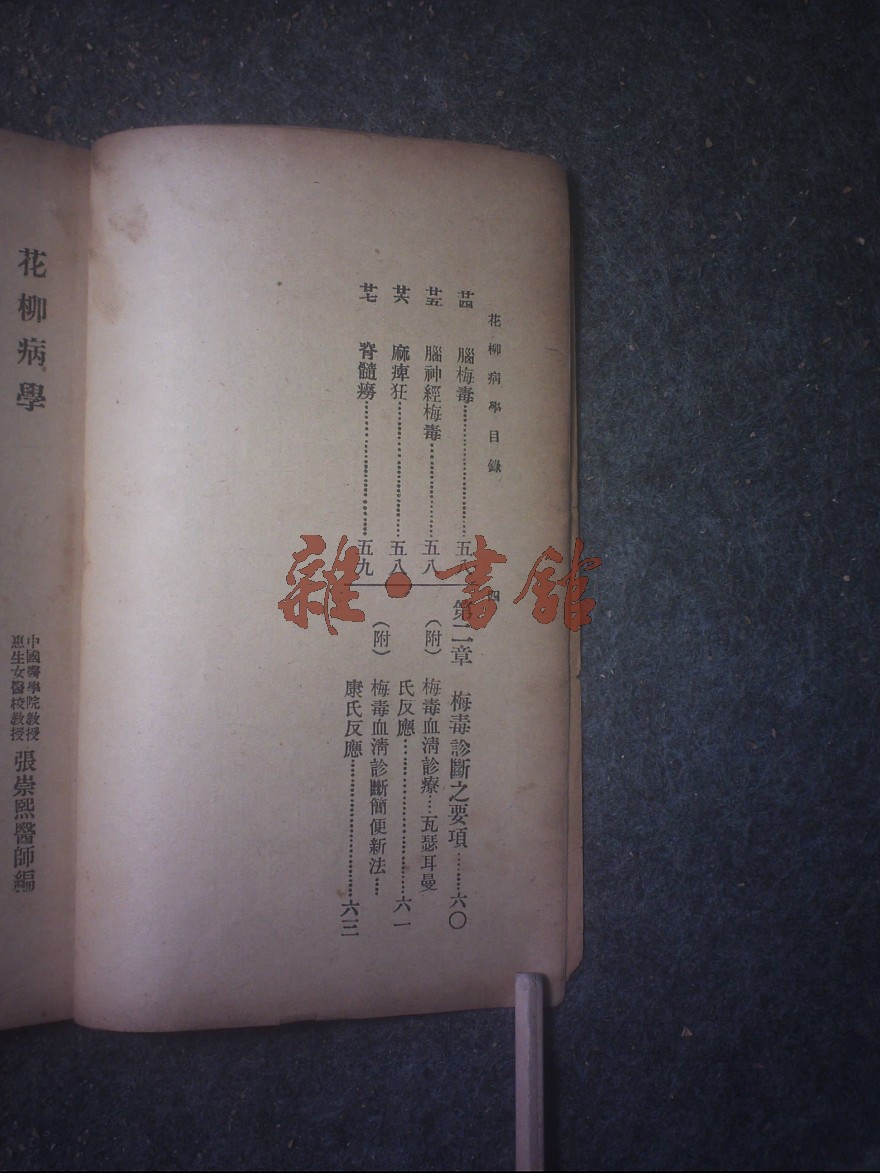 花柳病學目錄
四
廿四 腦梅毒……五八
廿五 腦神經梅毒……五八
廿六 麻痺狂……五八
廿七 脊髓癆……五九
第二章 梅毒診斷之要項……六〇
(附) 梅毒血清診療……瓦瑟耳曼
氏反應……六一
(附) 梅毒血清診斷簡便新法……
康氏反應……六三
花柳病學
中國醫學院教授
惠生女醫校教授
張崇熙醫師編
雜·書館